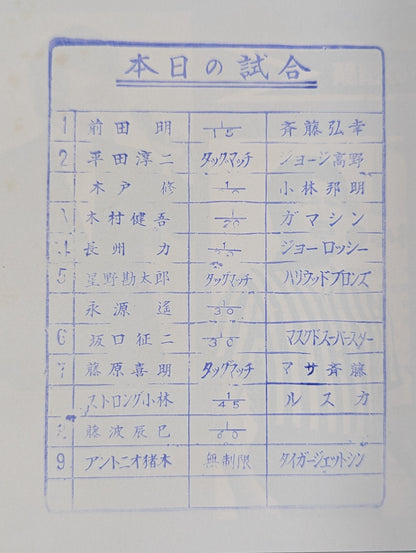 本日の試合
1 前田 明 1/15 斉藤弘幸
2 平田淳二 タッグマッチ ジョージ高野
木戸 修 小林邦明
3 木村健吾 1/20 ガマシン
4 長州 力 ジョーロッシー
5 星野勘太郎 タッグマッチ ハリウッドブロンズ
永源 遙 1/30
6 坂口征二 1/30 マスクドスーパースター
7 藤原喜明 タッグマッチ マサ斉藤
ストロング小林 1/45 ルスカ
8 藤波辰巳 1/60
9 アントニオ猪木 無制限 タイガージェットシン